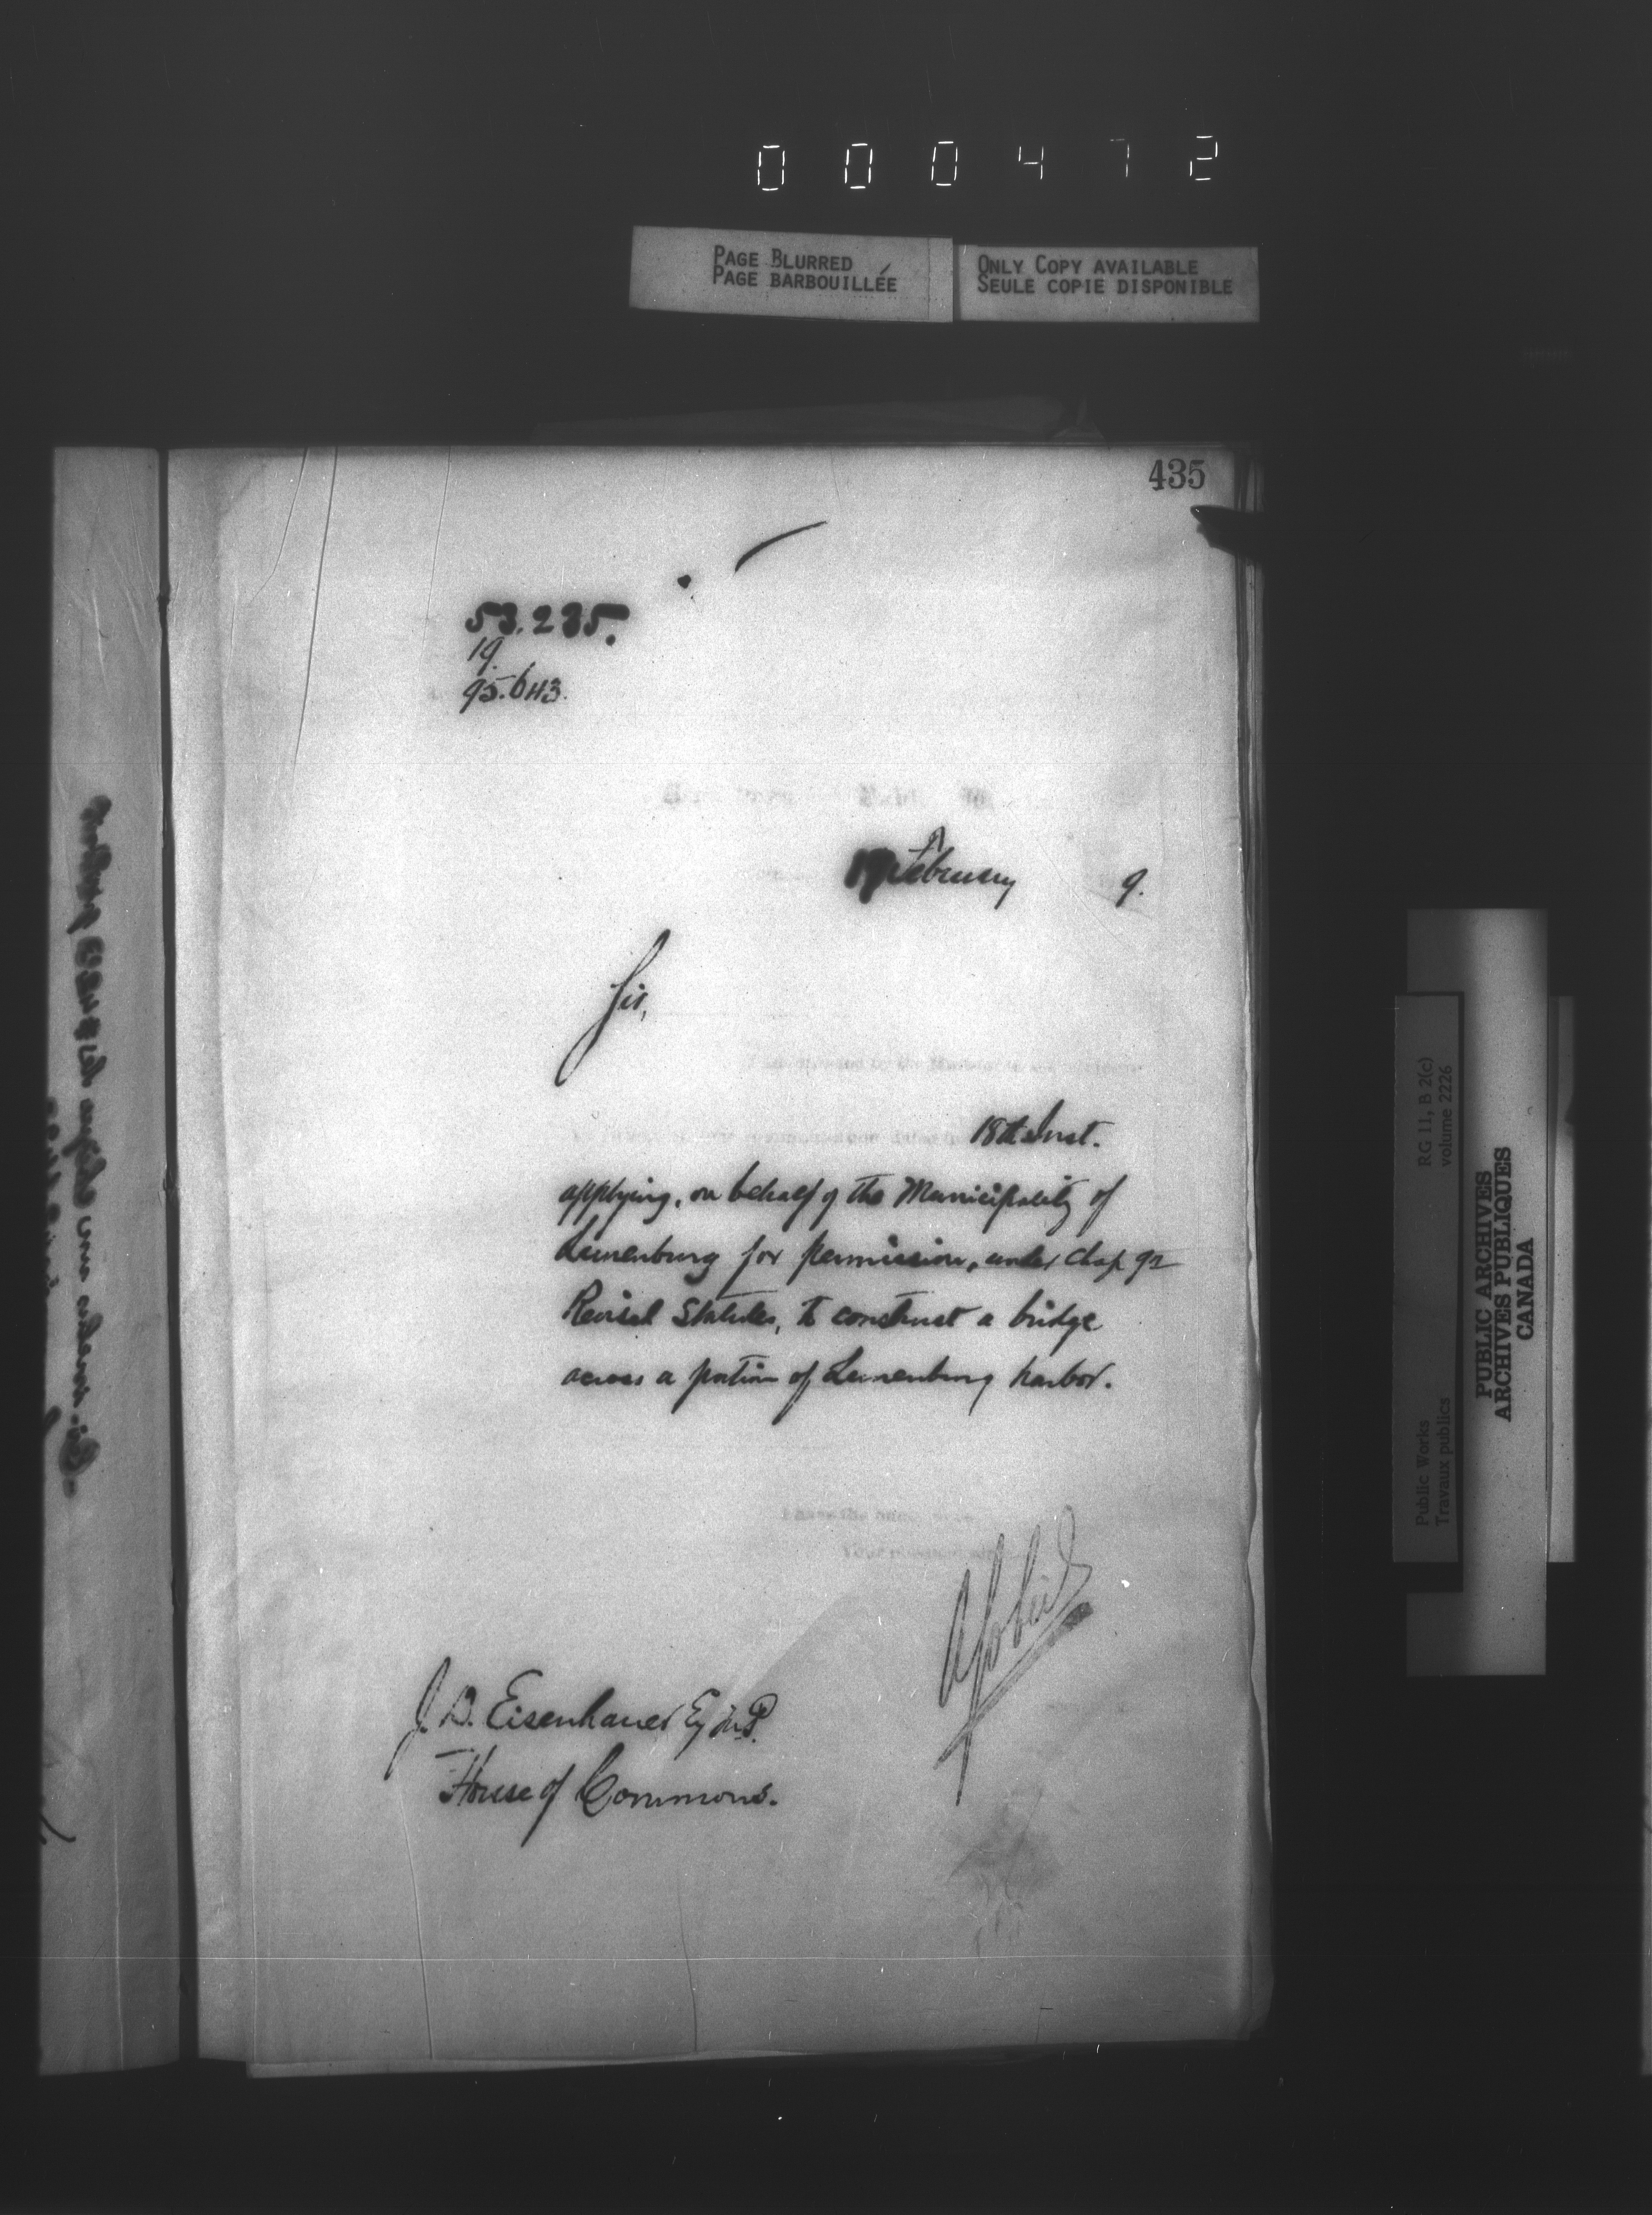 000472
PAGE BLURRED
PAGE BARBOUILLÉE
ONLY COPY AVAILABLE
SEULE COPIE DISPONIBLE
435
53.235.
19.
95.643.
February 9.
Sir,
18th Inst.
applying, on behalf of the Municipality of
Lunenburg for permission, under Chap 92
Revised Statutes, to construct a bridge
across a portion of Lunenburg harbor.
I have the
J. D. Eisenhauer Esq M.P.
House of Commons.
RG 11, B 2(c)
volume 2226
Public Works
Travaux publics
PUBLIC ARCHIVES
ARCHIVES PUBLIQUES
CANADA